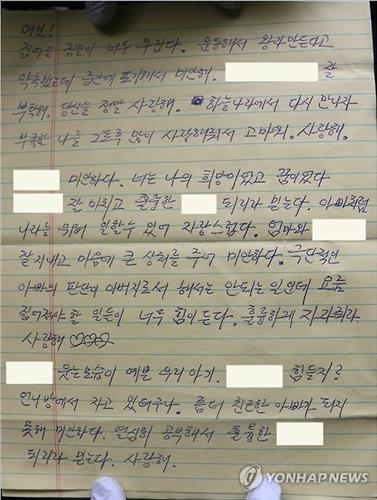 여보!
짊어질 짐들이 너무 무겁다. 운동해서 왕과만든다고
약속했는데 중간에 포기해서 미안해. 잘
부탁해. 당신을 정말 사랑해. 하늘나라에서 다시 만나자
부족한 나를 그토록 많이 사랑해줘서 고마워. 사랑해.
미안하다. 너는 나의 희망이었고 꿈이었다
잘 마치고 훌륭한 되리라 믿는다. 아빠처럼
나라를 위해 일할수 있어 자랑스럽다. 엄마와
잘 지내고 마음에 큰 상처를 주어 미안하다. 극단적인
아빠의 판단이 아버지로서 해서는 안되는 일인데 요즘
짊어져야 할 일들이 너무 힘이든다. 훌륭하게 자라줘라
사랑해 ♡♡♡♡
웃는모습이 예쁜 우리아기. 힘들지?
언니방에서 자고 있더구나. 좀더 친근한 아빠가 되지
못해 미안하다. 열심히 공부해서 훌륭한
되리라 믿는다. 사랑해.
YONHAP NEWS